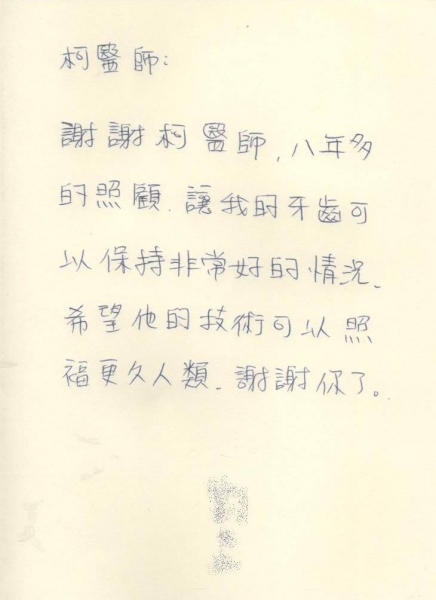 柯醫師:
謝謝柯醫師,八年多
的照顧.讓我的牙齒可
以保持非常好的情況.
希望他的技術可以照
福更久人類.謝謝你了。